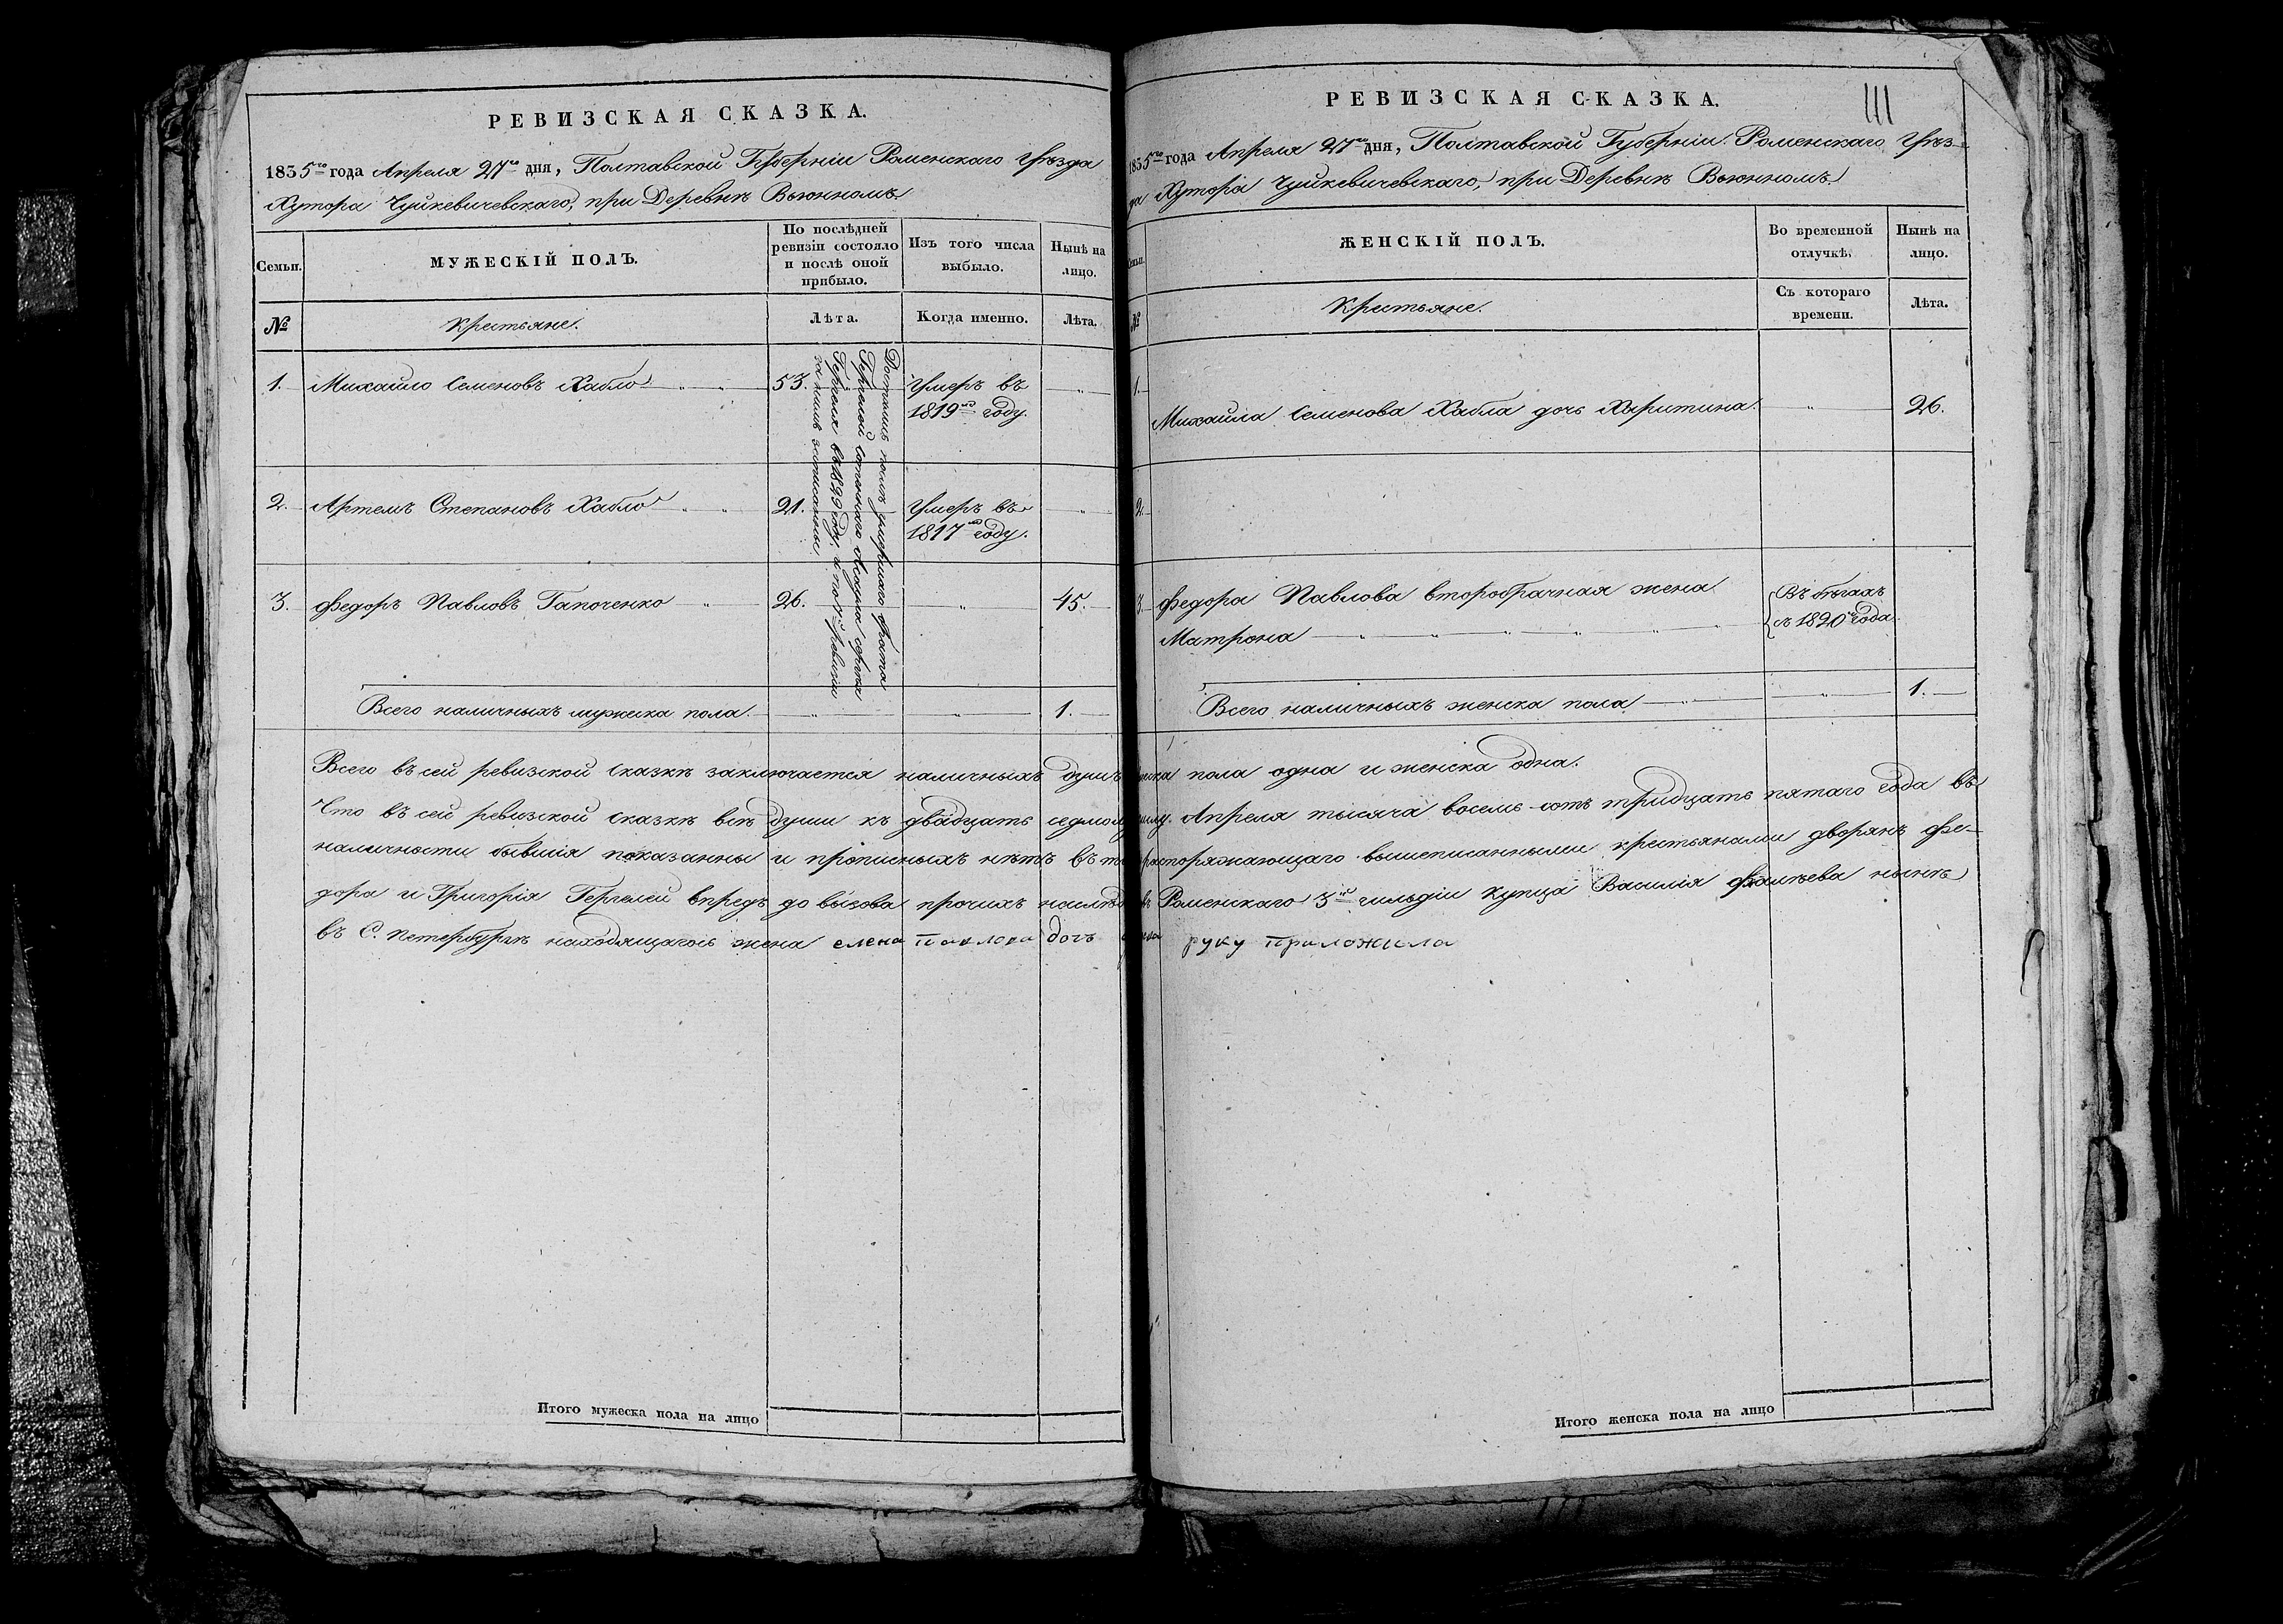 РЕВИЗСКАЯ СКАЗКА.
1835го года Апреля 27го дня, Полтавской Губерніи Роменскаго Уѣзда
Хутора Чуйкевичевскаго, при Деревнѣ Вьюнномъ.
Семьи.
МУЖЕСКІЙ ПОЛЪ.
По послѣдней
ревизіи состояло
и послѣ оной
прибыло.
Изъ того числа
выбыло.
Нынѣ на
лицо.
№
Крестьяне.
Лѣта.
Когда именно.
Лѣта.
1. Михайло Семеновъ Хабло 53. Умеръ въ
1819мъ году.
2. Артемъ Степановъ Хабло 21. Умеръ въ
1817мъ году.
3. Федоръ Павловъ Гапоченко 26. 45.
Достались послѣ умершаго брата
Гергелей сотеннаго Асаула Сергея
Гергеля въ 1829 году, и по 7й ревизіи
за нимъ записанны
Всего наличныхъ мужеска пола. 1.
Всего въ сей ревизской сказкѣ заключается наличныхъ душъ
Что въ сей ревизской сказкѣ всѣ души къ двадцать
наличности бывшія показанны и прописныхъ нѣтъ въ
дора и Григорія Гергелей впредь до вызова прочихъ
въ С. Петербургѣ находящагось жена елена павлова дочь
Итого мужеска пола на лицо
РЕВИЗСКАЯ СКАЗКА.
111
1835го года Апреля 27го дня, Полтавской Губерніи Роменскаго Уѣз-
да Хутора Чуйкевичевскаго, при Деревнѣ Вьюнномъ.
ЖЕНСКІЙ ПОЛЪ.
Во временной
отлучкѣ.
Нынѣ на
лицо.
№
Крестьяне.
Съ котораго
времени.
Лѣта.
1.
Михайла Семенова Хабла дочь Харитина. 26.
2.
3. Федора Павлова второбрачная жена
Матрона
Въ бѣгахъ
съ 1820го года.
Всего наличныхъ женска пола 1.
пола одна и женска одна.
Апреля тысяча восемь сотъ тридцать пятаго года въ
распоряжающаго вышеписанными крестьянами дворянъ Фе-
Роменскаго 3й гильдіи купца Василія Фалѣева нынѣ
руку приложила
Итого женска пола на лицо